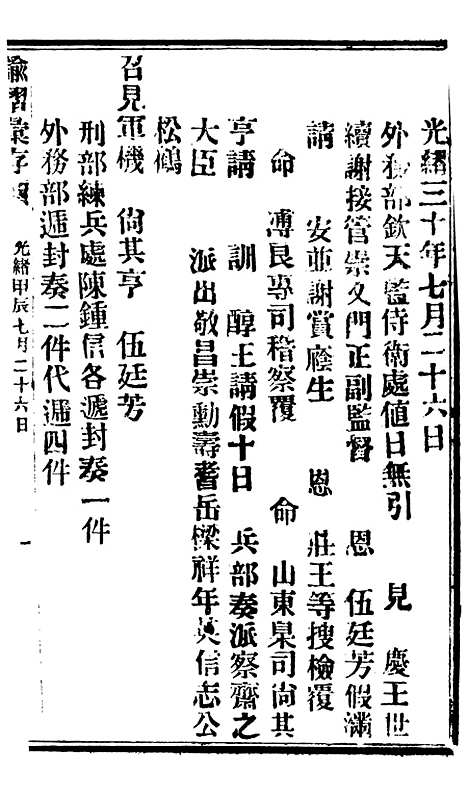 光緒三十年七月二十六日
外務部欽天監侍衛處值日無引　見　慶王世
續謝接管崇文門正副監督　恩　伍廷芳假滿
請　安並謝賞廕生　恩　莊王等搜檢覆
命　溥良專司稽察覆　命　山東臬司尙其
亨請　訓　醇王請假十日　兵部奏派察齋之
大臣　派出敬昌崇勳壽耆岳樑祥年英信志公
松鶴
召見軍機　尙其亨　伍廷芳
刑部練兵處陳鍾信各遞封奏一件
外務部遞封奏二件代遞四件
諭習彙存　光緒甲辰七月二十六日　一